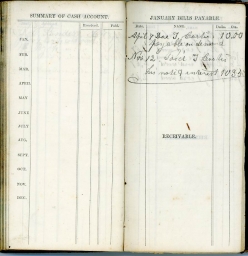 SUMMARY OF CASH ACCOUNT.
Received. Paid.
JAN.
FEB.
MAR.
APRIL.
MAY.
JUNE.
JULY.
AUG.
SEPT.
OCT.
NOV.
DEC.
JANUARY BILLS PAYABLE.
Date. NAME. Dolls. Cts.
April 7 T. 10.50
payable on demand
Nov 12 T.
his note & interest 10.85
RECEIVABLE.